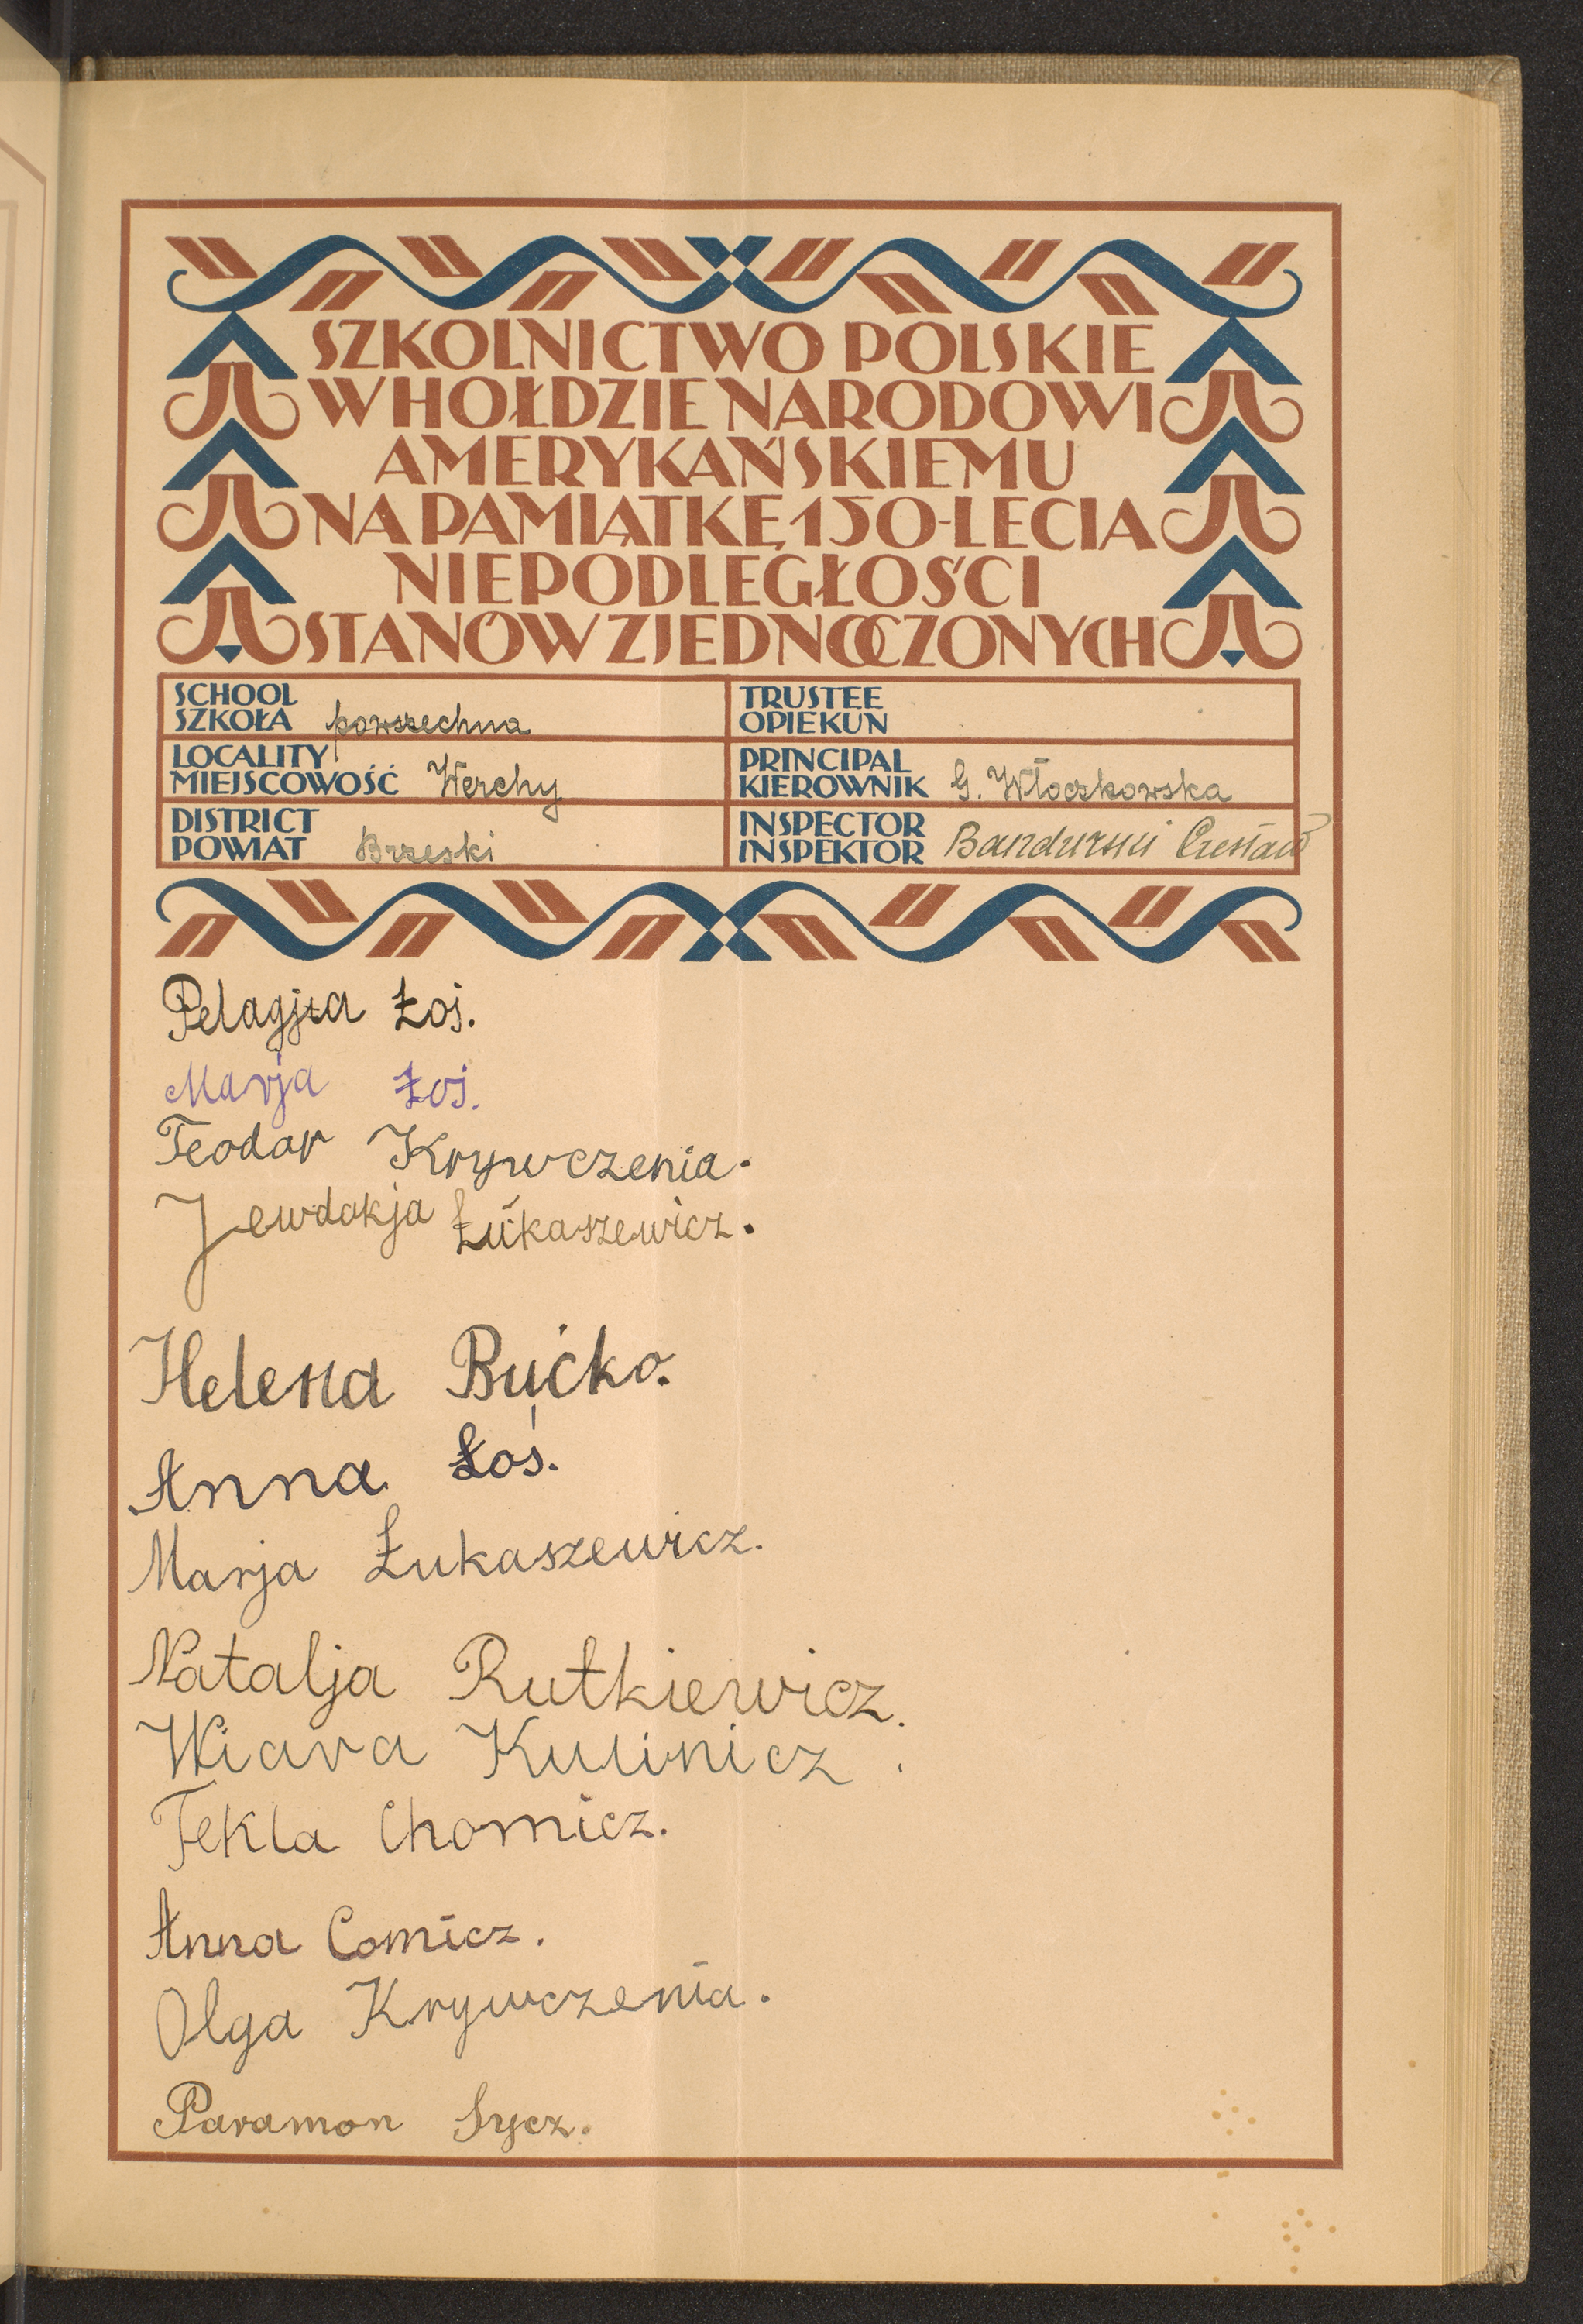 SZKOLNICTWO POLSKIE
W HOŁDZIE NARODOWI
AMERYKAŃSKIEMU
NA PAMIĄTKĘ 150-LECIA
NIEPODLEGŁOŚCI
STANÓW ZJEDNOCZONYCH
SCHOOL
SZKOŁA powszechna
TRUSTEE
OPIEKUN
LOCALITY
MIEJSCOWOŚĆ Werchy
PRINCIPAL
KIEROWNIK G. Włoczkowska
DISTRICT
POWIAT Brzeski
INSPECTOR
INSPEKTOR Bandurski Czesław
Pelagja Łoś.
Marja Łoś.
Teodor Krywczenia.
Jewdokja Łukaszewicz.
Helena Bućko.
Anna Łoś.
Marja Łukaszewicz.
Natalja Rutkiewicz.
Wiara Kulinicz.
Tekla Chomicz.
Anna Comicz.
Olga Krywczenia.
Paramon Sycz.